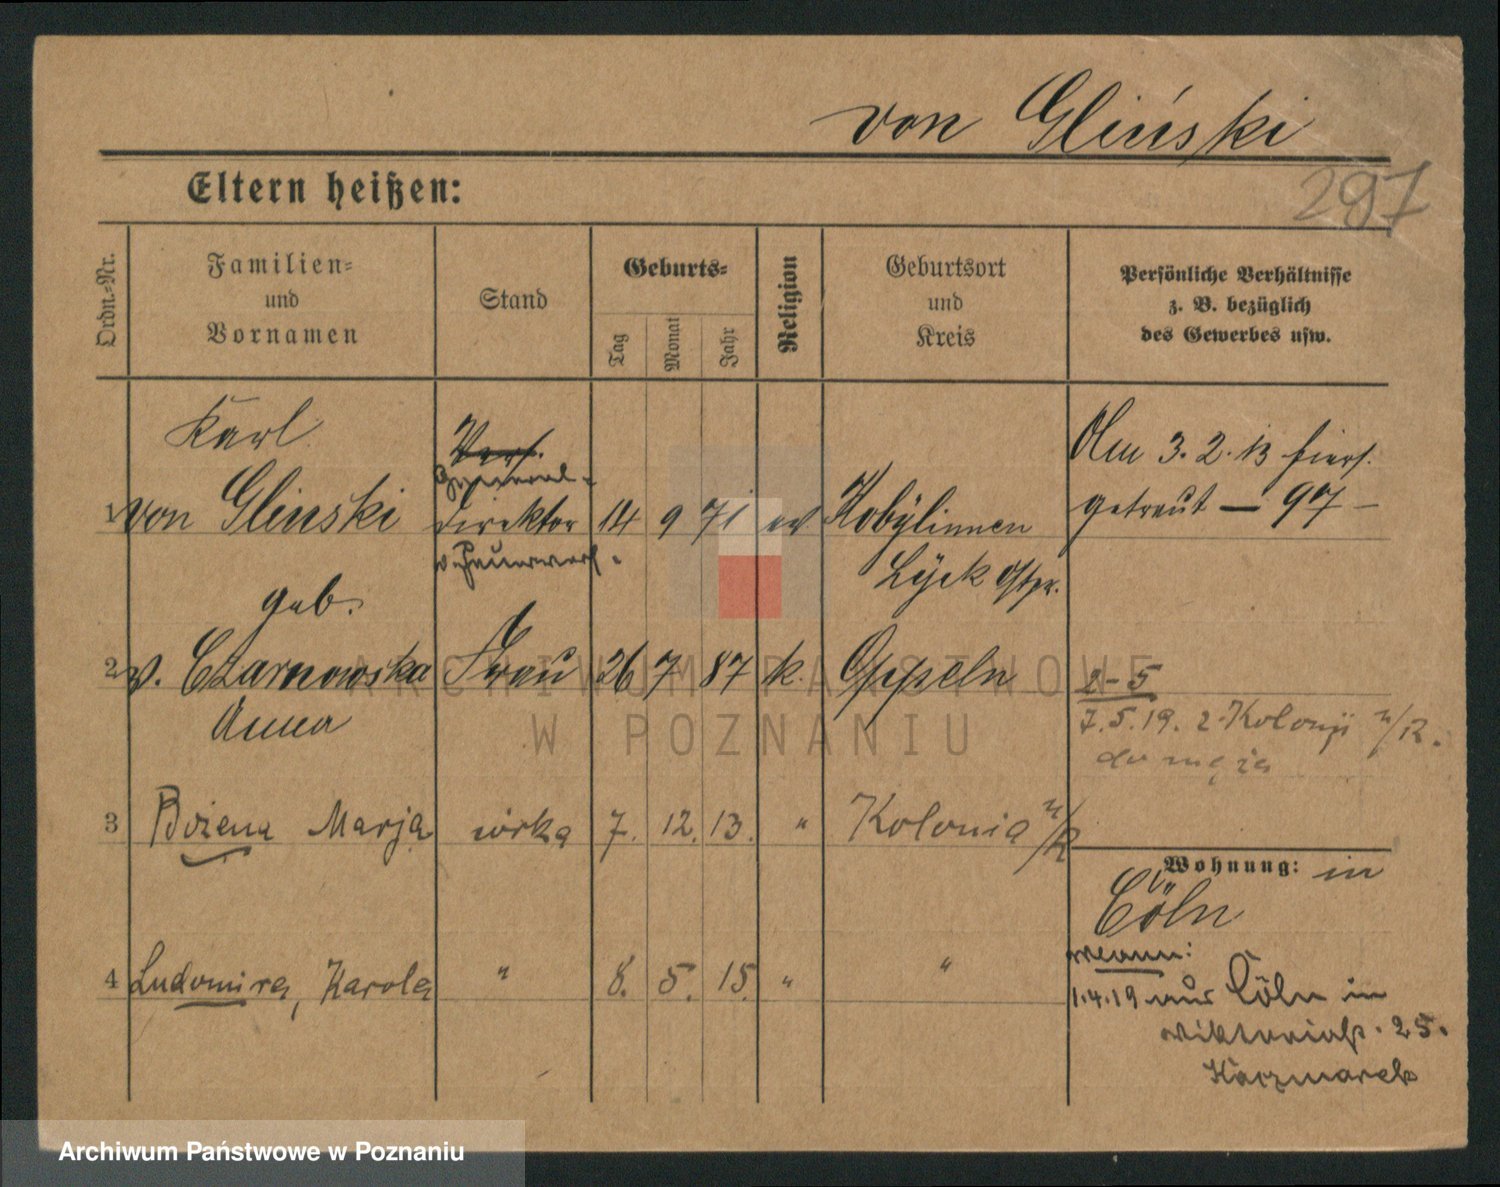 von Gliński
297
Eltern heißen:
Ordn.-Nr.
Familien-
und
Vornamen
Stand
Geburts-
Tag
Monat
Jahr
Religion
Geburtsort
und
Kreis
Persönliche Verhältnisse
z. B. bezüglich
des Gewerbes usw.
Karl
1 von Glinski
General-
direktor
14 9 71 ev Kobÿlinnen
Lÿck Ostpr.
Am 3.2.13 hier
getraut — 97 —
geb.
2 v. Czarnowska Frau 26 7 87 k. Oppeln
Anna
2-5
7.5.19. z Kolonji n/R.
do męża
3 Bożena Marja córka 7. 12. 13. " Kolonia n/R
Wohnung: in
Cöln
4 Ludomira, Karola " 8. 5. 15. " "
1.4.19 aus Cöln in
Viktoriastr. 25.
Kaczmarek
ARCHIWUM PAŃSTWOWE
W POZNANIU
Archiwum Państwowe w Poznaniu